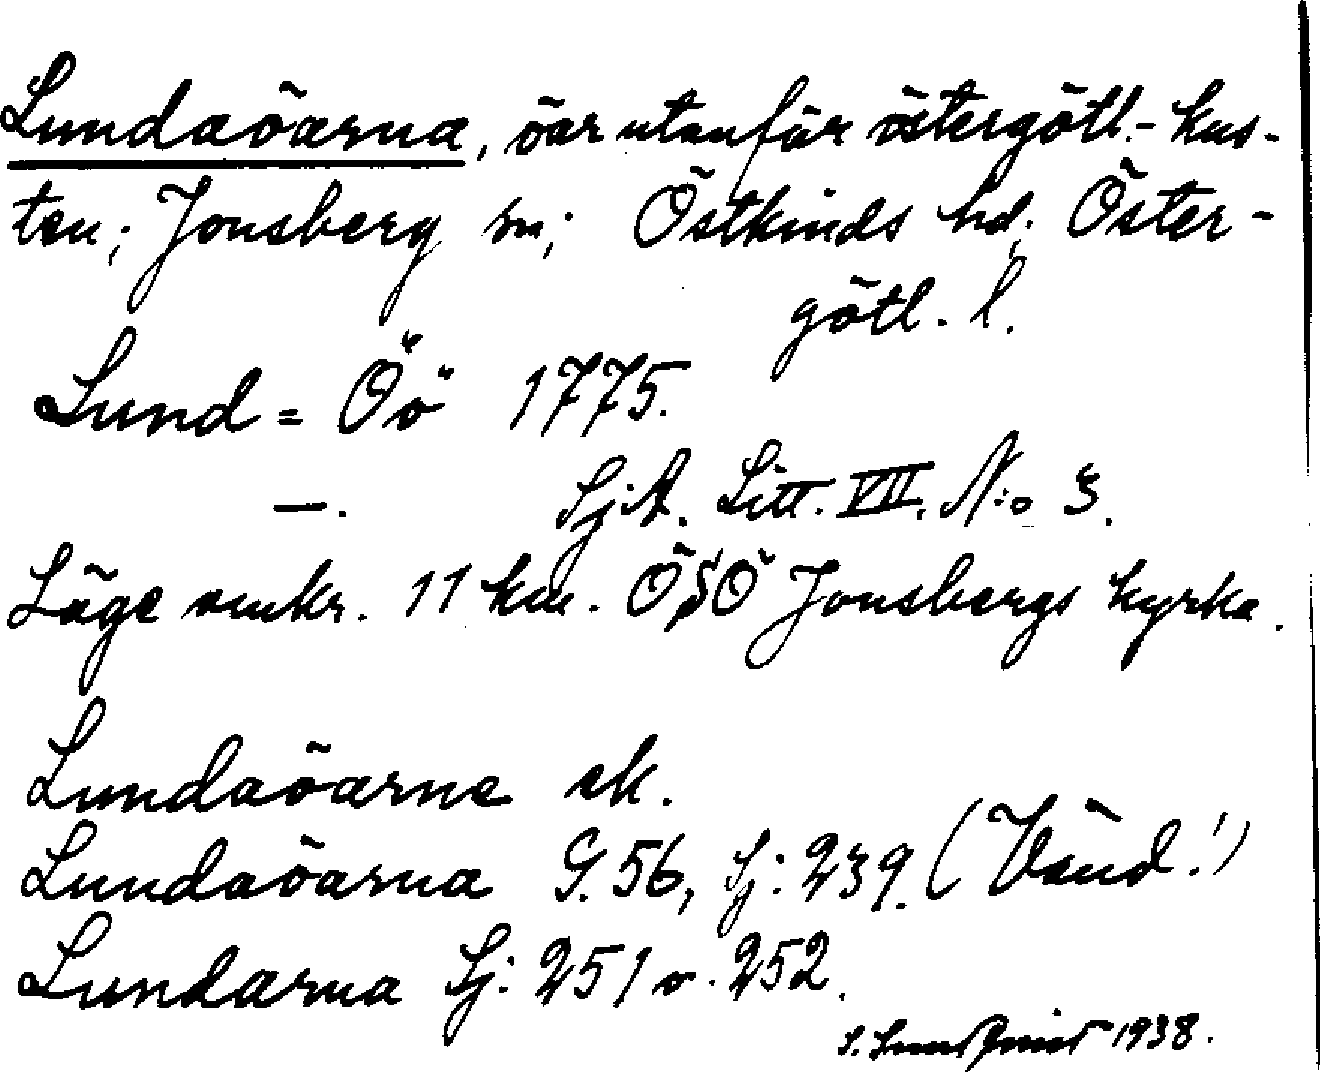 Lundaöarna, öar utanför östergötl.- kus-
ten; Jonsberg sn; Östkinds hd; Öster-
götl. l.
Lund = Öö 1775.
—. Sj.A. Litt. VII. N:o 3.
Läge omkr. 11 km. ÖSÖ Jonsbergs kyrka.
Lundaöarne ek.
Lundaöarna G. 56, Sj: 239. (Vänd!)
Lundarna Sj: 251 o. 252.
S. Lundqvist 1938.